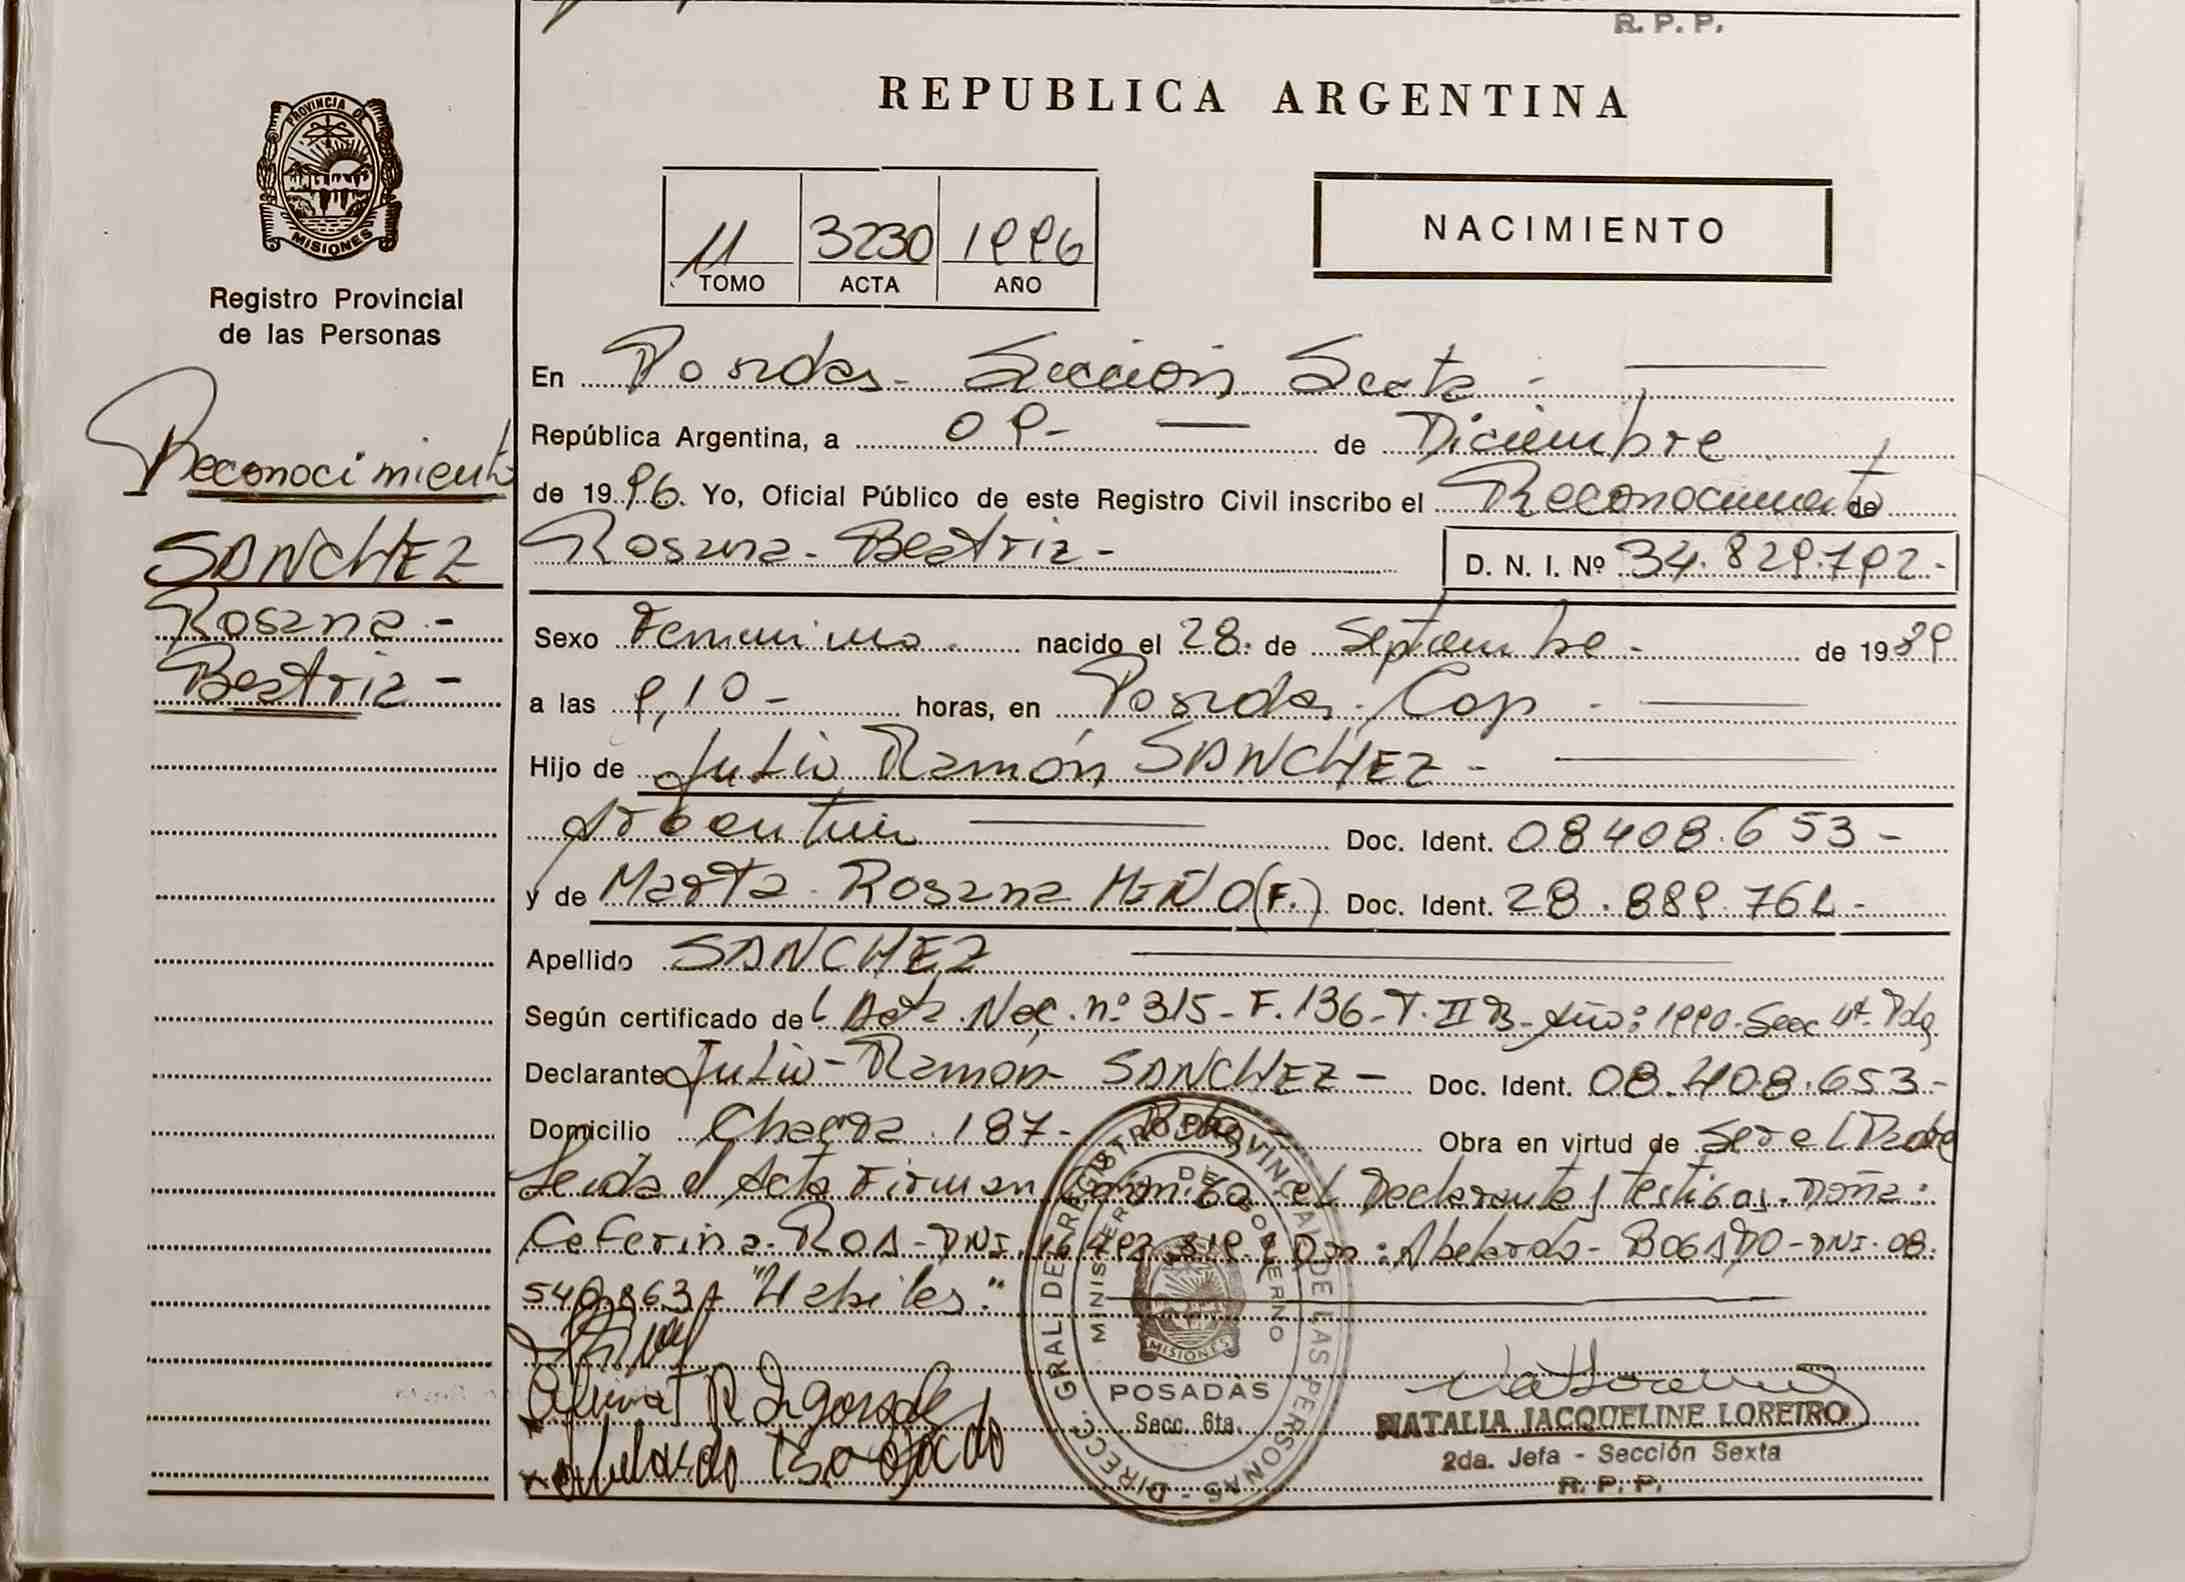 R. P. P.
REPUBLICA ARGENTINA
PROVINCIA DE
MISIONES
Registro Provincial
de las Personas
11 3230 1996
TOMO ACTA AÑO
NACIMIENTO
Reconocimiento
SANCHEZ
Rosana -
Beatriz -
En Posadas - Sección Sexta -
República Argentina, a 09 - de Diciembre
de 1996. Yo, Oficial Público de este Registro Civil inscribo el Reconocimiento de
Rosana - Beatriz - D. N. I. Nº 34.829.792 -
Sexo Femenino. nacido el 28. de Septiembre - de 1989
a las 9,10 - horas, en Posadas. Cap -
Hijo de Julio Ramón SANCHEZ -
Argentina Doc. Ident. 08408.653 -
y de Marta Rosana MIÑO (F.) Doc. Ident. 28.889.761 -
Apellido SANCHEZ
Según certificado del Acta Nac. nº 315 - F. 136 - T. II B - Año: 1990 - Secc 4ª. Pdas
Declarante Julio - Ramón SANCHEZ - Doc. Ident. 08.408.653 -
Domicilio Chacra 187 - Pdas - Obra en virtud de Ser el Padre
Leida el Acta Firman Conmigo el Declarante y testigos. Doña:
Ceferina ROA - DNI. y Don: Abelardo - BOGADO - DNI. 08.
"Habiles."
DIRECC. GRAL. DE REGISTRO PROVINCIAL DE LAS PERSONAS -
MINISTERIO DE GOBIERNO
MISIONES
POSADAS
Secc. 6ta.
Abelardo Bogado
NATALIA JACQUELINE LOREIRO
2da. Jefa - Sección Sexta
R. P. P.